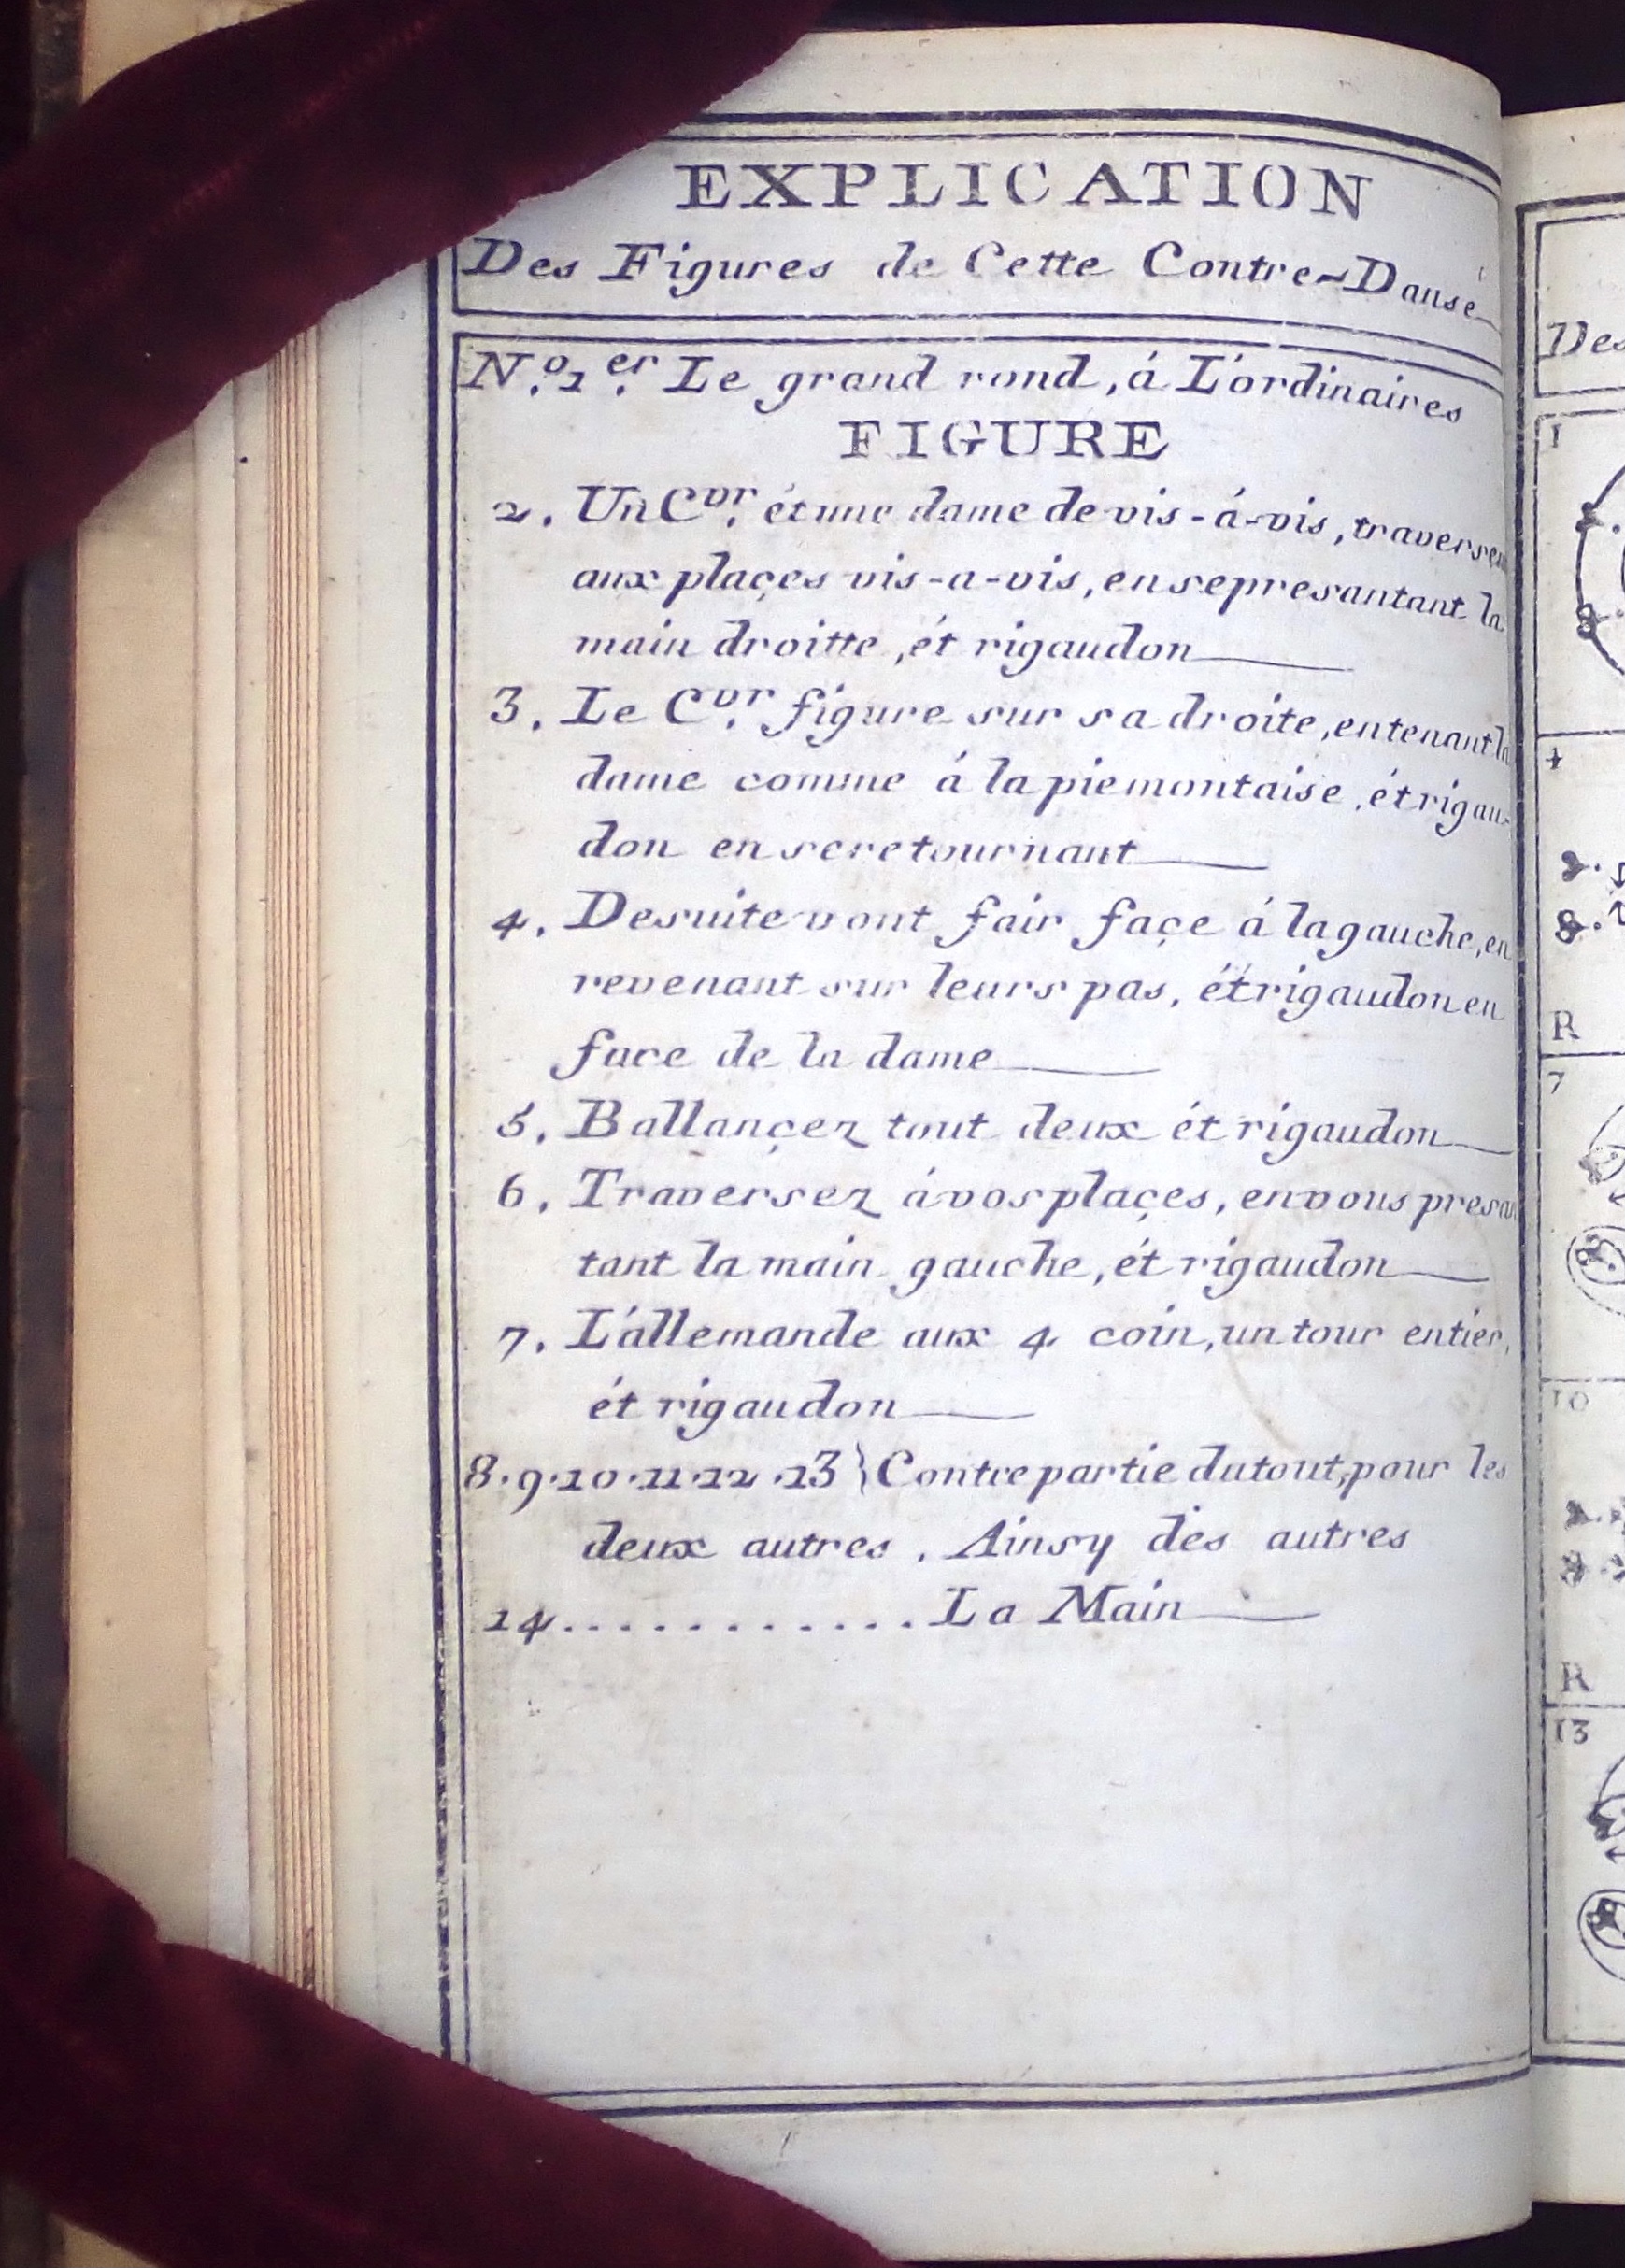 EXPLICATION
Des Figures de Cette Contre-Danse
N.º 1.er Le grand rond, á L'ordinaires
FIGURE
2. Un C.vr ét une dame de vis-á-vis, traversen
aux plaçes vis-a-vis, en se presantant la
main droitte, ét rigaudon
3. Le C.vr figure sur sa droite, en tenant la
dame comme á la piemontaise, ét rigau-
don en se retournant
4. De suite vont fair façe á la gauche, en
revenant sur leurs pas, ét rigaudon en
face de la dame
5. Ballançez tout deux ét rigaudon
6. Traversez á vos plaçes, en vous presan
tant la main gauche, ét rigaudon
7. L'allemande aux 4 coin, un tour entier,
ét rigaudon
8.9.10.11.12.13} Contre partie du tout, pour les
deux autres. Ainsy des autres
14............La Main
Des
1
4
R
7
10
R
13